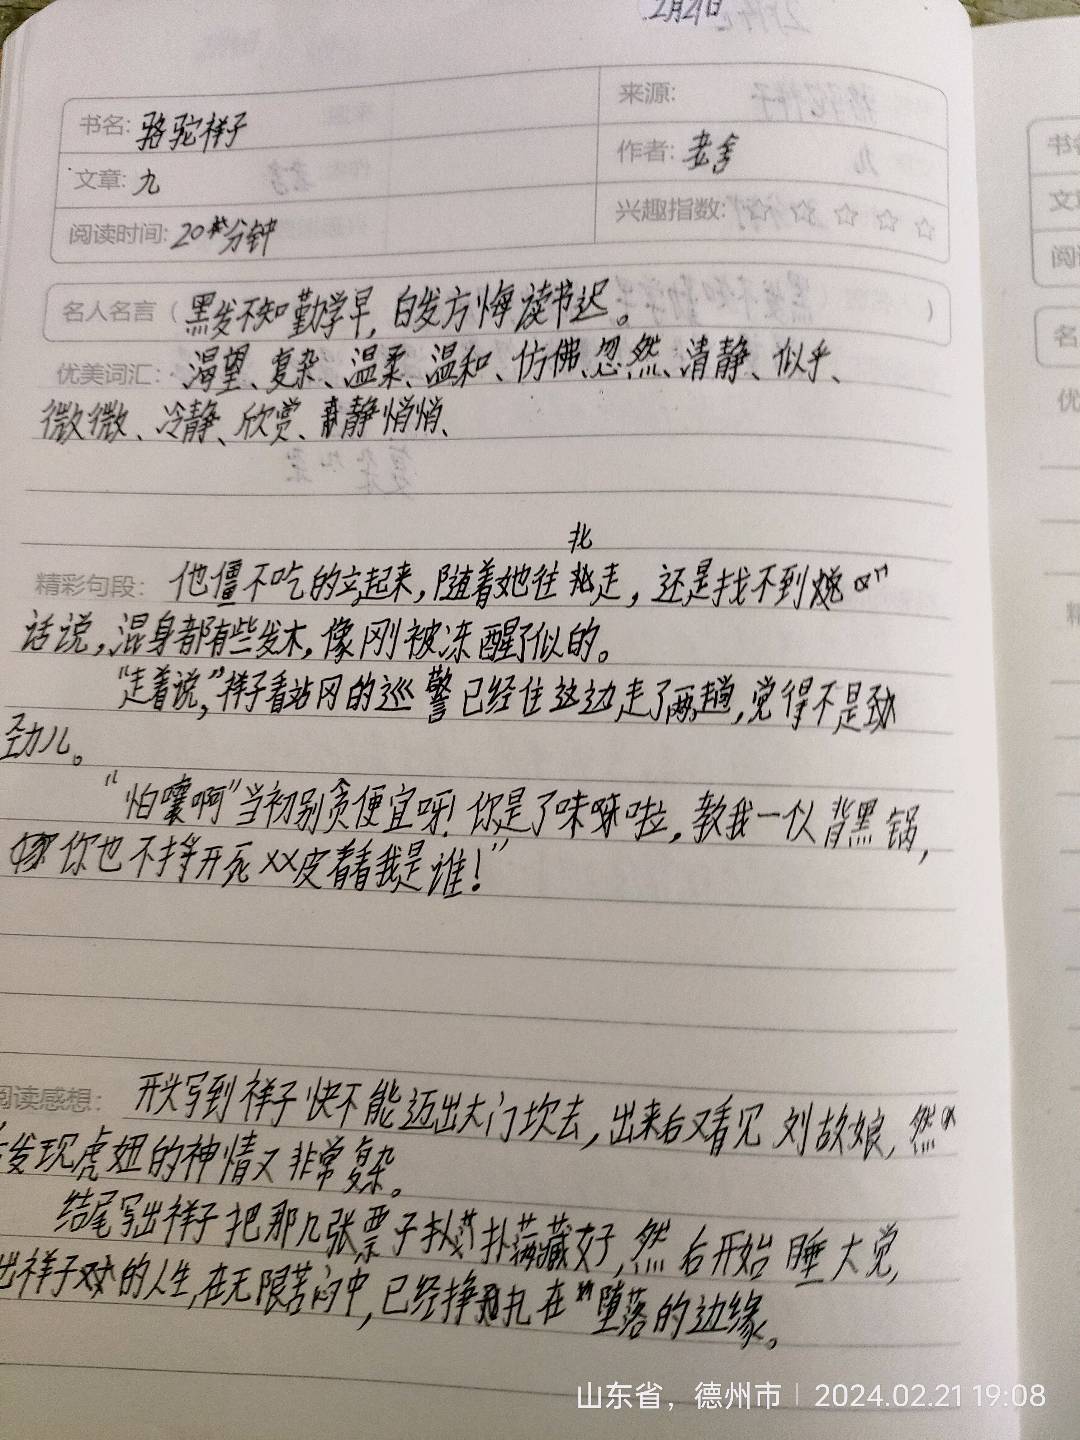 2月21日
书名: 骆驼祥子
来源:
文章: 九
作者: 老舍
阅读时间: 20分钟
兴趣指数: ☆ ☆ ☆ ☆ ☆
名人名言（黑发不知勤学早，白发方悔读书迟。）
优美词汇: 渴望、复杂、温柔、温和、仿佛、忽然、清静、似乎、
微微、冷静、欣赏、静悄悄、
北
精彩句段: 他僵不吃的立起来，随着她往走，还是找不到
话说，混身都有些发木，像刚被冻醒了似的。
“走着说，”祥子看站冈的巡警已经往这边走了两趟，觉得不是劲
劲儿。
“怕嚷啊”当初别贪便宜呀！你是了味啦，教我一个背黑锅，
你也不挣开死XX皮看看我是谁！”
阅读感想: 开头写到祥子快不能迈出大门坎去，出来后又看见刘故娘，然
发现虎妞的神情又非常复杂。
结尾写出祥子把那几张票子扑藏好，然后开始睡大觉，
出祥子的人生，在无限苦闷中，已经挣扎在堕落的边缘。
山东省，德州市 | 2024.02.21 19:08